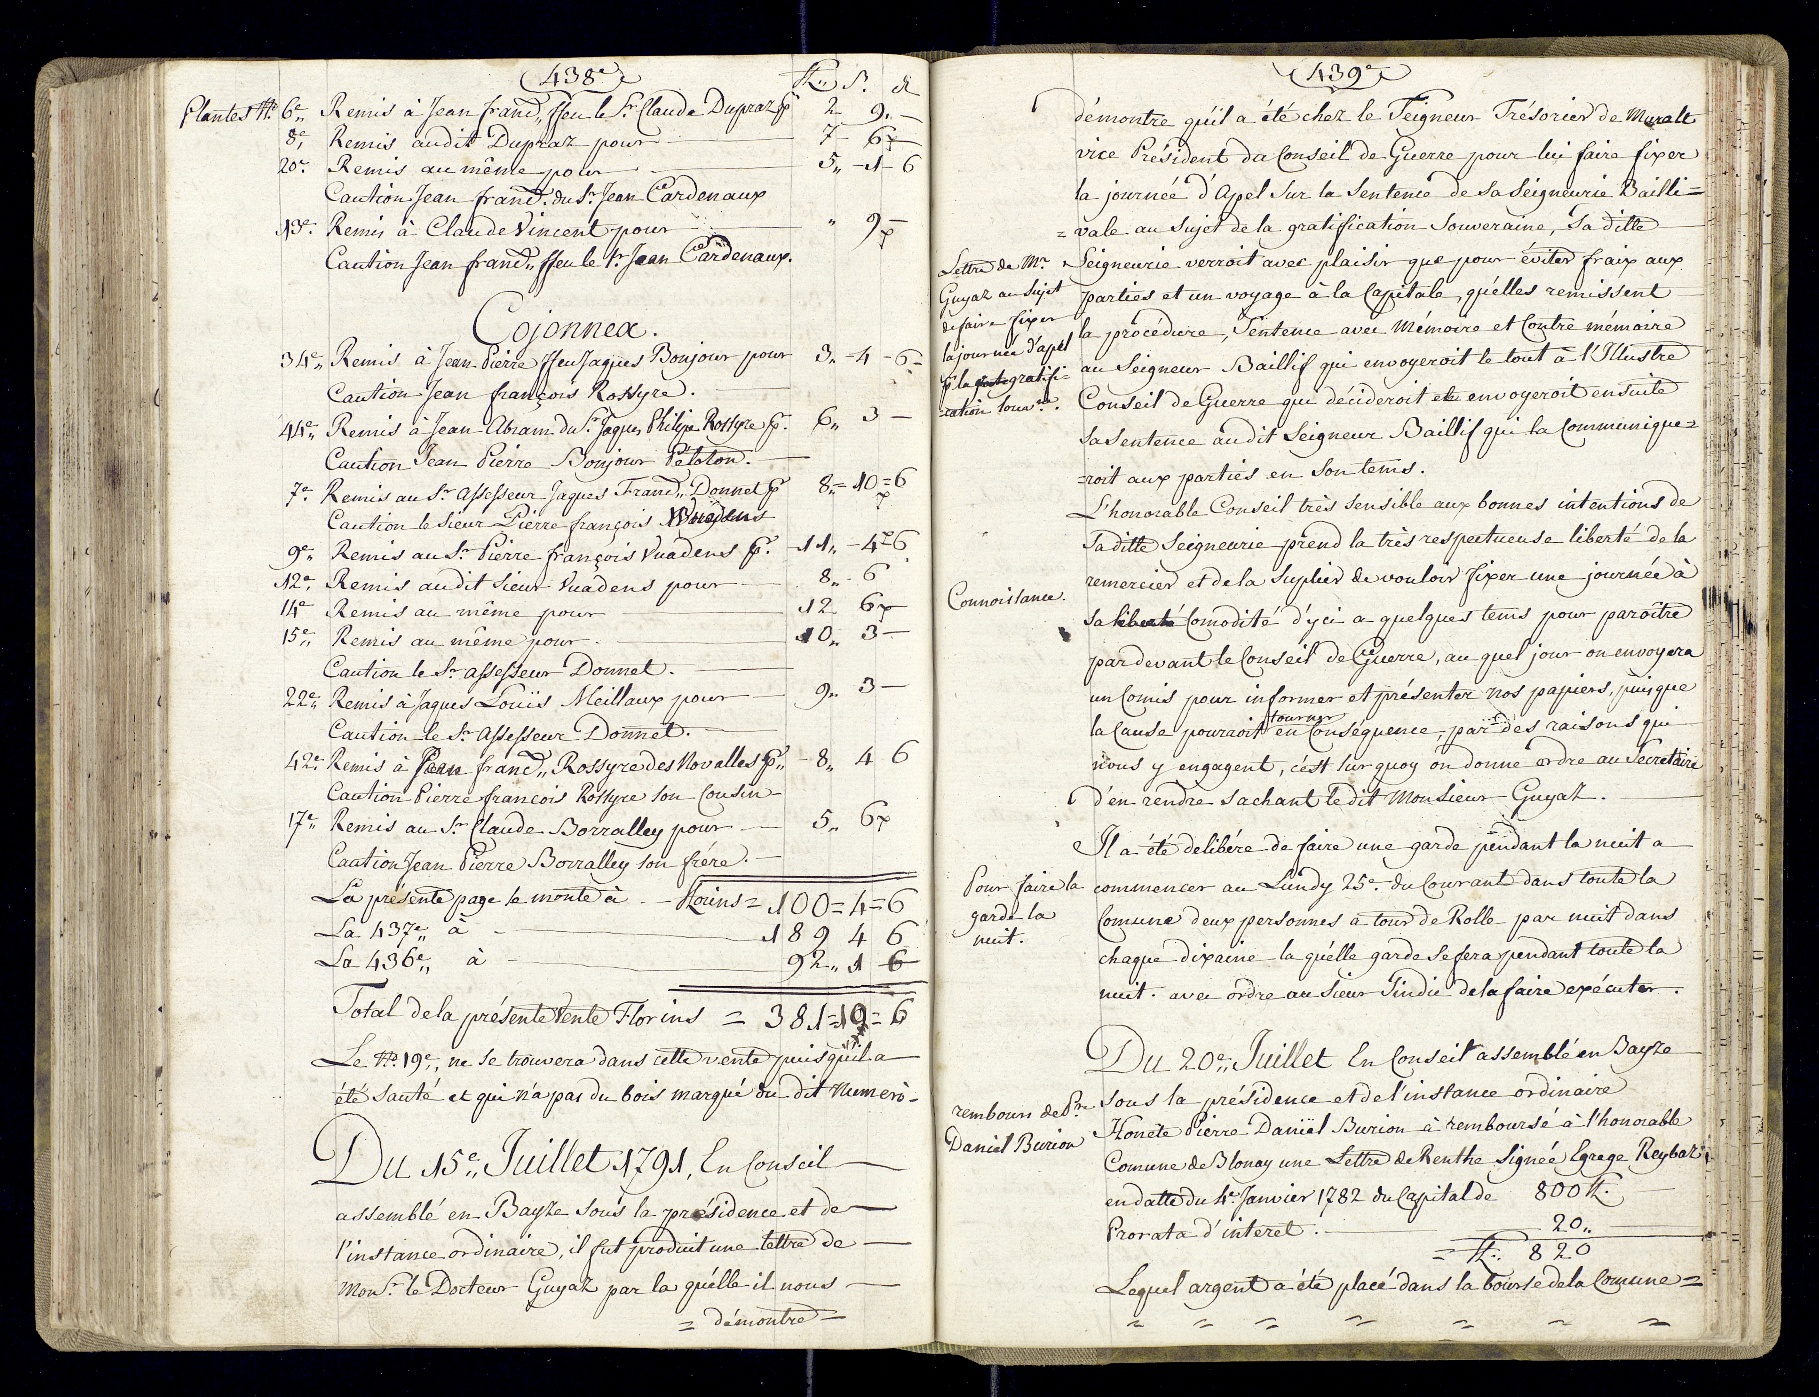 438e
fl. ß. d
Plantes No. 6e Remis à Jean franç., ffeu le Sr. Claude Dupraz p. 2 9 –
8e Remis audit Dupraz pour 7 – 6
20e Remis au même pour 5 – 1 – 6
Caution Jean franç. du Sr. Jean Cardenaux
13e Remis à Claude Vincent pour " 9 –
Caution Jean franç., ffeu le Sr. Jean Cardenaux.
Cojonnex.
34e Remis à Jean Pierre ffeu Jaques Bonjour pour 3 – 4 – 6
Caution Jean françois Rossyre.
44e Remis à Jean Abram du Sr. Jaques Philipe Rossyre p. 6 3 –
Caution Jean Pierre Bonjour Péloton.
7e Remis au Sr. assesseur Jaques Franç. Donnet p. 8 = 10 = 6
Caution le sieur Pierre françois
9e Remis au Sr. Pierre françois Vuadens p. 11 – 4 – 6
12e Remis audit sieur Vuadens pour 8 – 6
14e Remis au même pour 12 6
15e Remis au même pour 10 3 –
Caution le Sr. assesseur Donnet.
22e Remis à Jaques Louïs Meillaux pour 9 3 –
Caution le Sr. assesseur Donnet.
42e Remis à Jean franç. Rossyre des Novalles p. – 8 4 6
Caution Pierre francois Rossyre son Cousin
17e Remis au Sr. Claude Borralley pour 5 6
Caution Jean Pierre Borralley son frére.
La présente page se monte à – florins = 100 = 4 = 6
La 437e à 189 4 6
La 436e à 92 1 6
Total de la présente vente Florins = 381 = 10 = 6
Le No. 19e, ne se trouvera dans cette vente puisqu'il a
été sauté et qui n'a pas du bois marqué du dit Numero.
Du 15e Juillet 1791, En Conseil
assemblé en Bayse sous la présidence et de
l'instance ordinaire, il fut produit une lettre de
Monsr. le Docteur Guyaz par la quélle il nous
= démontre =
439e
démontre qu'il a été chez le Seigneur Trésorier de Muralt
vice Président du Conseil de Guerre pour lui faire fixer
la journée d'Apel sur la sentence de sa Seigneurie Bailli=
=vale au sujet de la gratification Souveraine, Sa ditte
Lettre de Mr.
Guyaz au sujet
de faire fixer
la journée d'apel
p. la gratifi=
=cation souvne.
Seigneurie verroit avec plaisir que pour éviter fraix aux
parties et un voyage à la Capitale, qu'elles remissent
la procédure, Sentence avec Mémoire et Contre mémoire
au Seigneur Baillif qui envoyeroit le tout à l'Illustre
Conseil de Guerre qui décideroit et envoyeroit ensuite
sa sentence audit Seigneur Baillif qui la Communique=
=roit aux parties en son tems.
L'honorable Conseil très sensible aux bonnes intentions de
Sa ditte Seigneurie prend la très respectueuse liberté de la
Connoissance.
remercier et de la suplier de vouloir fixer une journée à
sa liberté Comodité d'yci a quelques tems pour paroître
par devant le Conseil de Guerre, au quel jour on envoyera
un Comis pour informer et présenter nos papiers, puisque
la Cause pourroit tourner en Consequence, par des raisons qui
nous y engagent, c'est sur quoy on donne ordre au Secretaire
d'en rendre sachant le dit Monsieur Guyaz.
Il a été delibére de faire une garde pendant la nuit a
Pour faire la
garde la
nuit.
commencer au Lundy 25e. du Courant dans toute la
Comune deux personnes à tour de Rolle par nuit dans
chaque dixaine la quélle garde se fera pendant toute la
nuit. avec ordre au sieur Sindic de la faire exécuter.
Du 20e Juillet En Conseil assemblé en Bayse
sous la présidence et de l'instance ordinaire
rembours de Pre
Daniel Burion
Honête Pierre Daniël Burion à remboursé à l'honorable
Comune de Blonay une Lettre de Renthe signée Egrege Reybaz
en datte du 4e. Janvier 1782 du Capital de 800 fl.
Prorata d'interet. 20
= fl. 820
Lequel argent a été placé dans la bourse de la Comune =